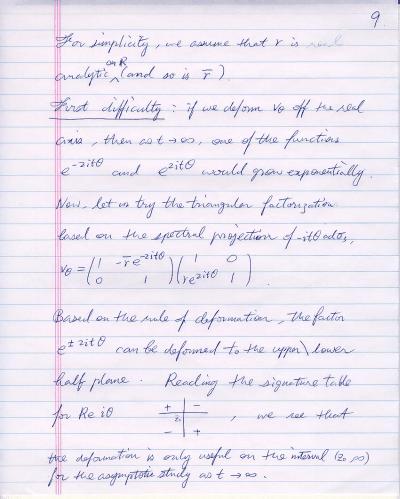 9.
For simplicity, we assume that r is real
analytic on ℝ (and so is r̄).
First difficulty: if we deform v_θ off the real
axis, then as t → ∞, one of the functions
e^{-2itθ} and e^{2itθ} would grow exponentially.
Now, let us try the triangular factorization
based on the spectral projection of -itθ adσ₃
v_θ = (1 -r̄e^{-2itθ} ; 0 1)(1 0 ; re^{2itθ} 1).
Based on the rule of deformation, the factor
e^{± 2itθ} can be deformed to the upper\lower
half plane. Reading the signature table
for Re iθ + - z₀ - +, we see that
the deformation is only useful on the interval (z₀, ∞)
for the asymptotic study as t → ∞.